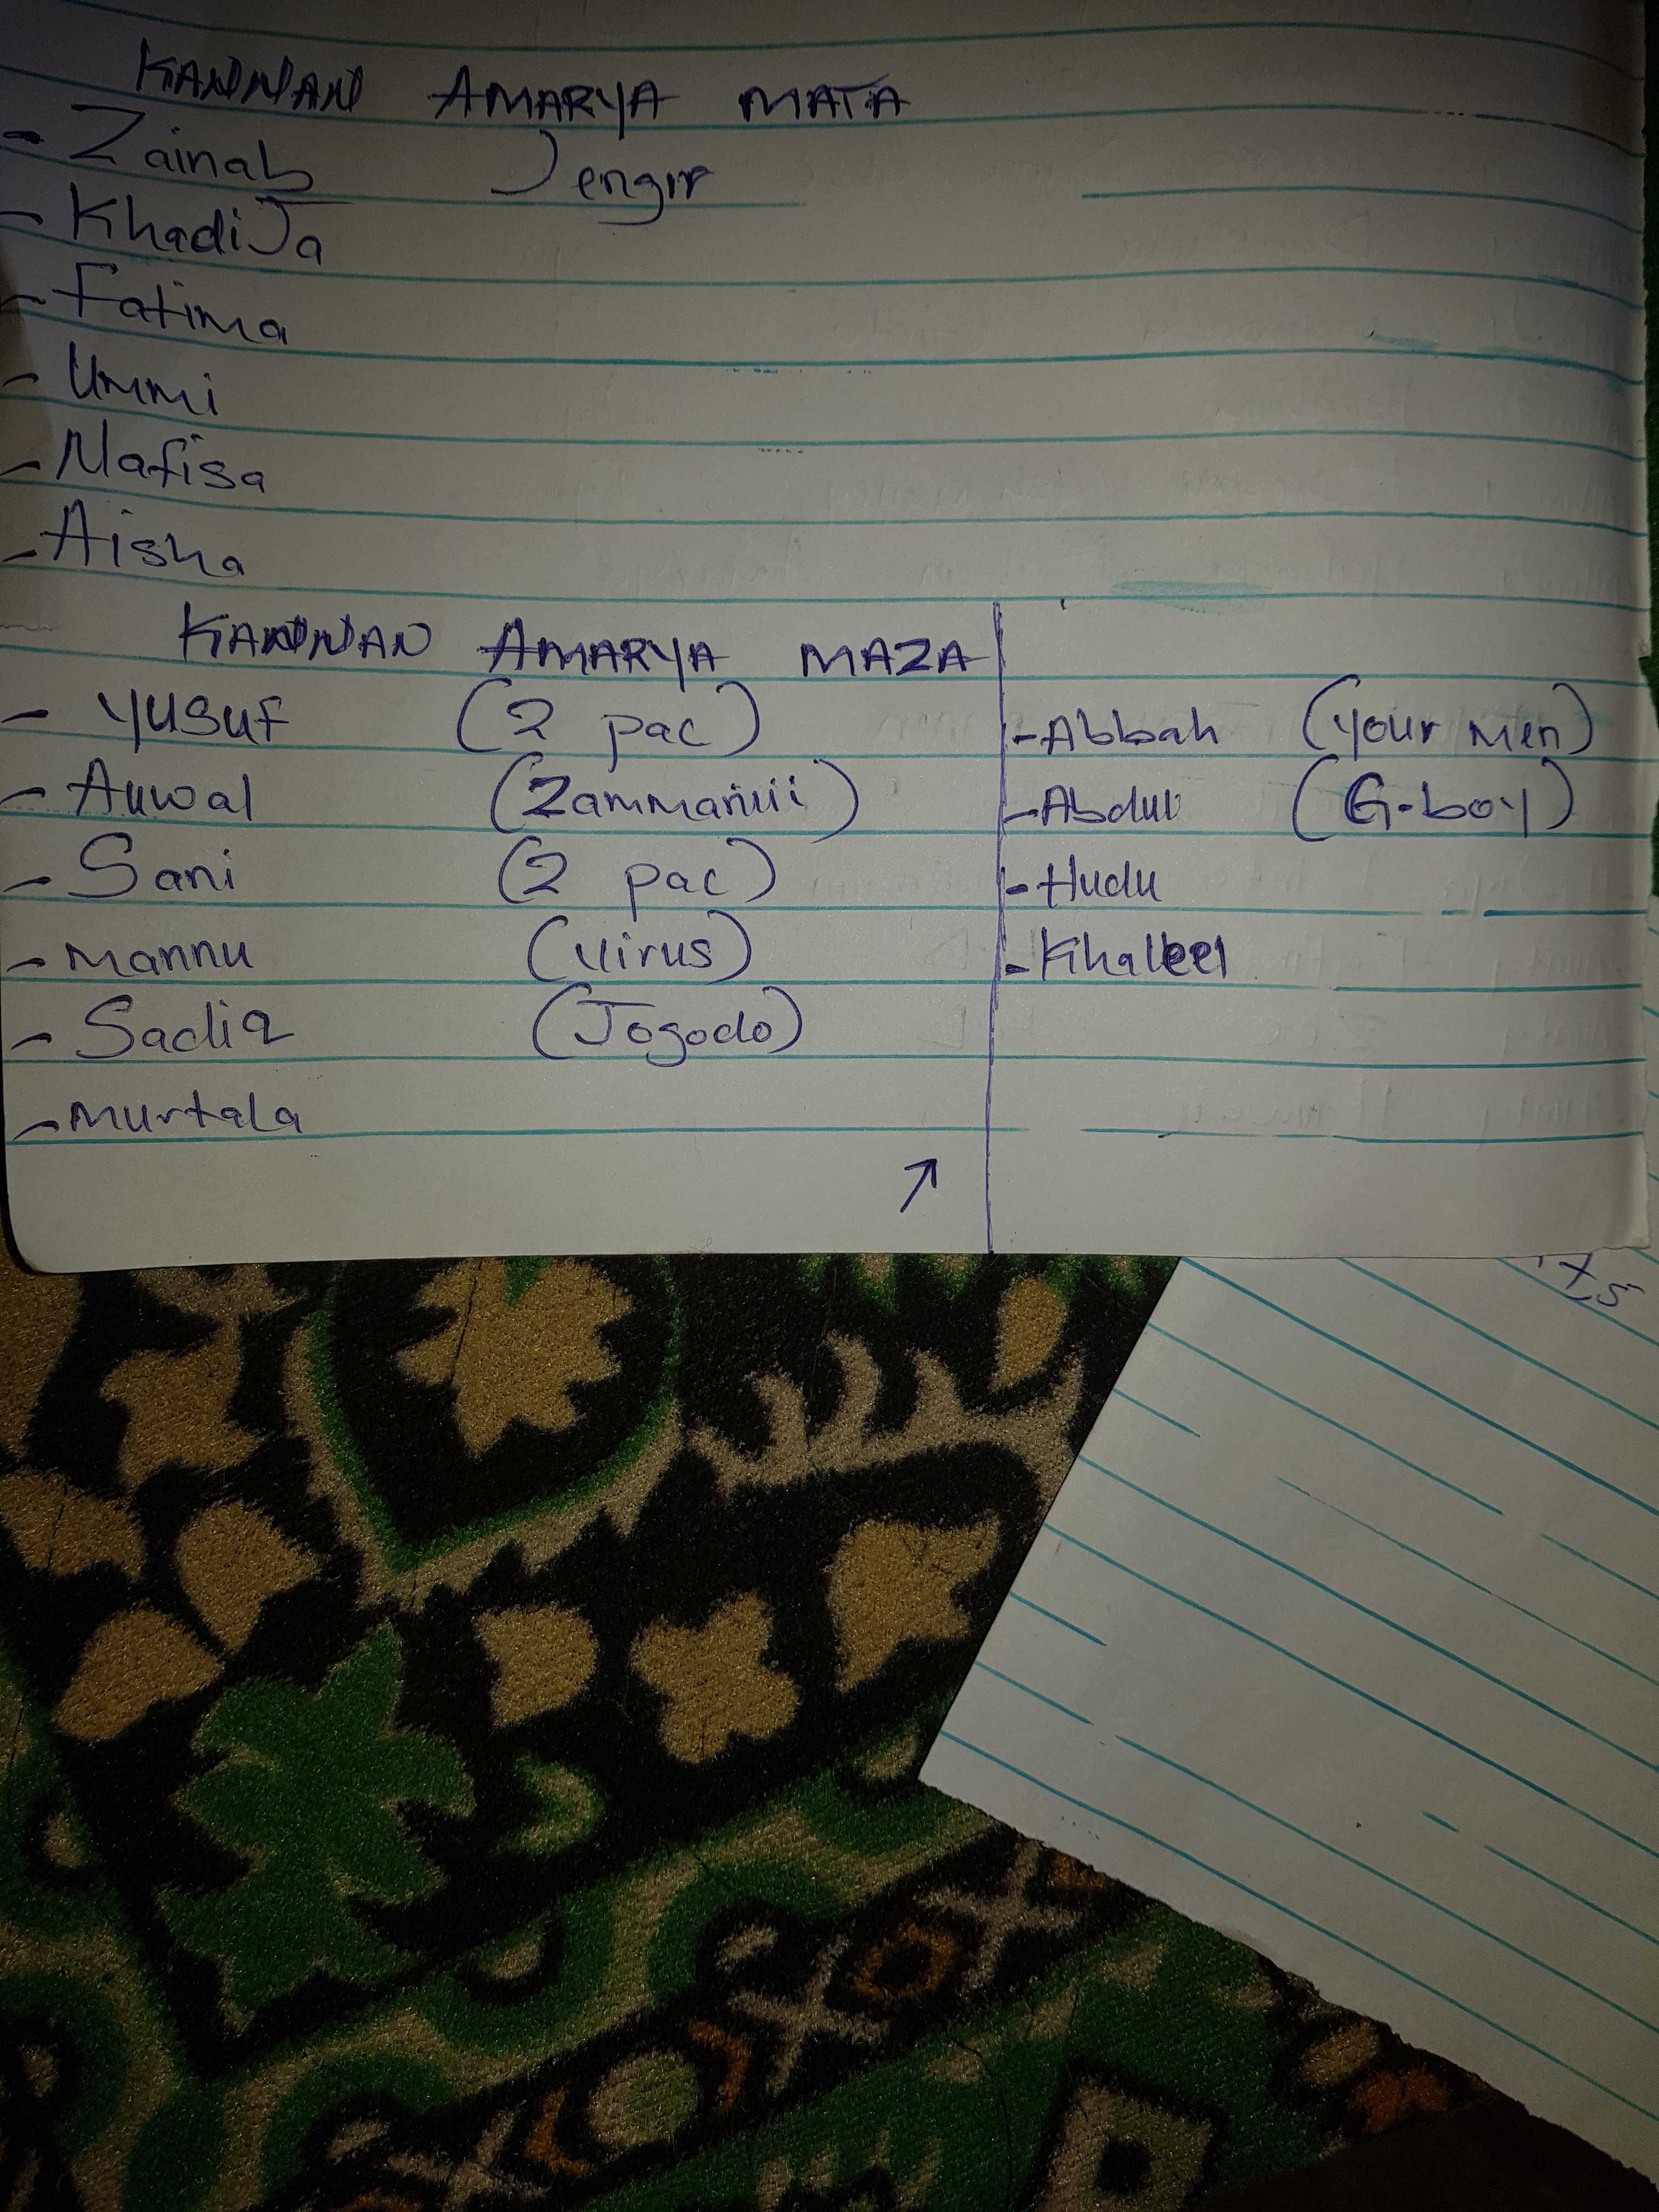 KANNAN AMARYA MATA
- Zainab Jengir
- Khadija
- Fatima
- Ummi
- Nafisa
- Aisha
KANNAN AMARYA MAZA
- Yusuf (2 pac)
- Auwal
- Sani (2 pac)
- Mannu (Virus)
- Sadiq (Jogodo)
- Murtala
↗
- Abbah (your Men)
- Abdul (G-boy)
- Hudu
- Khaleel